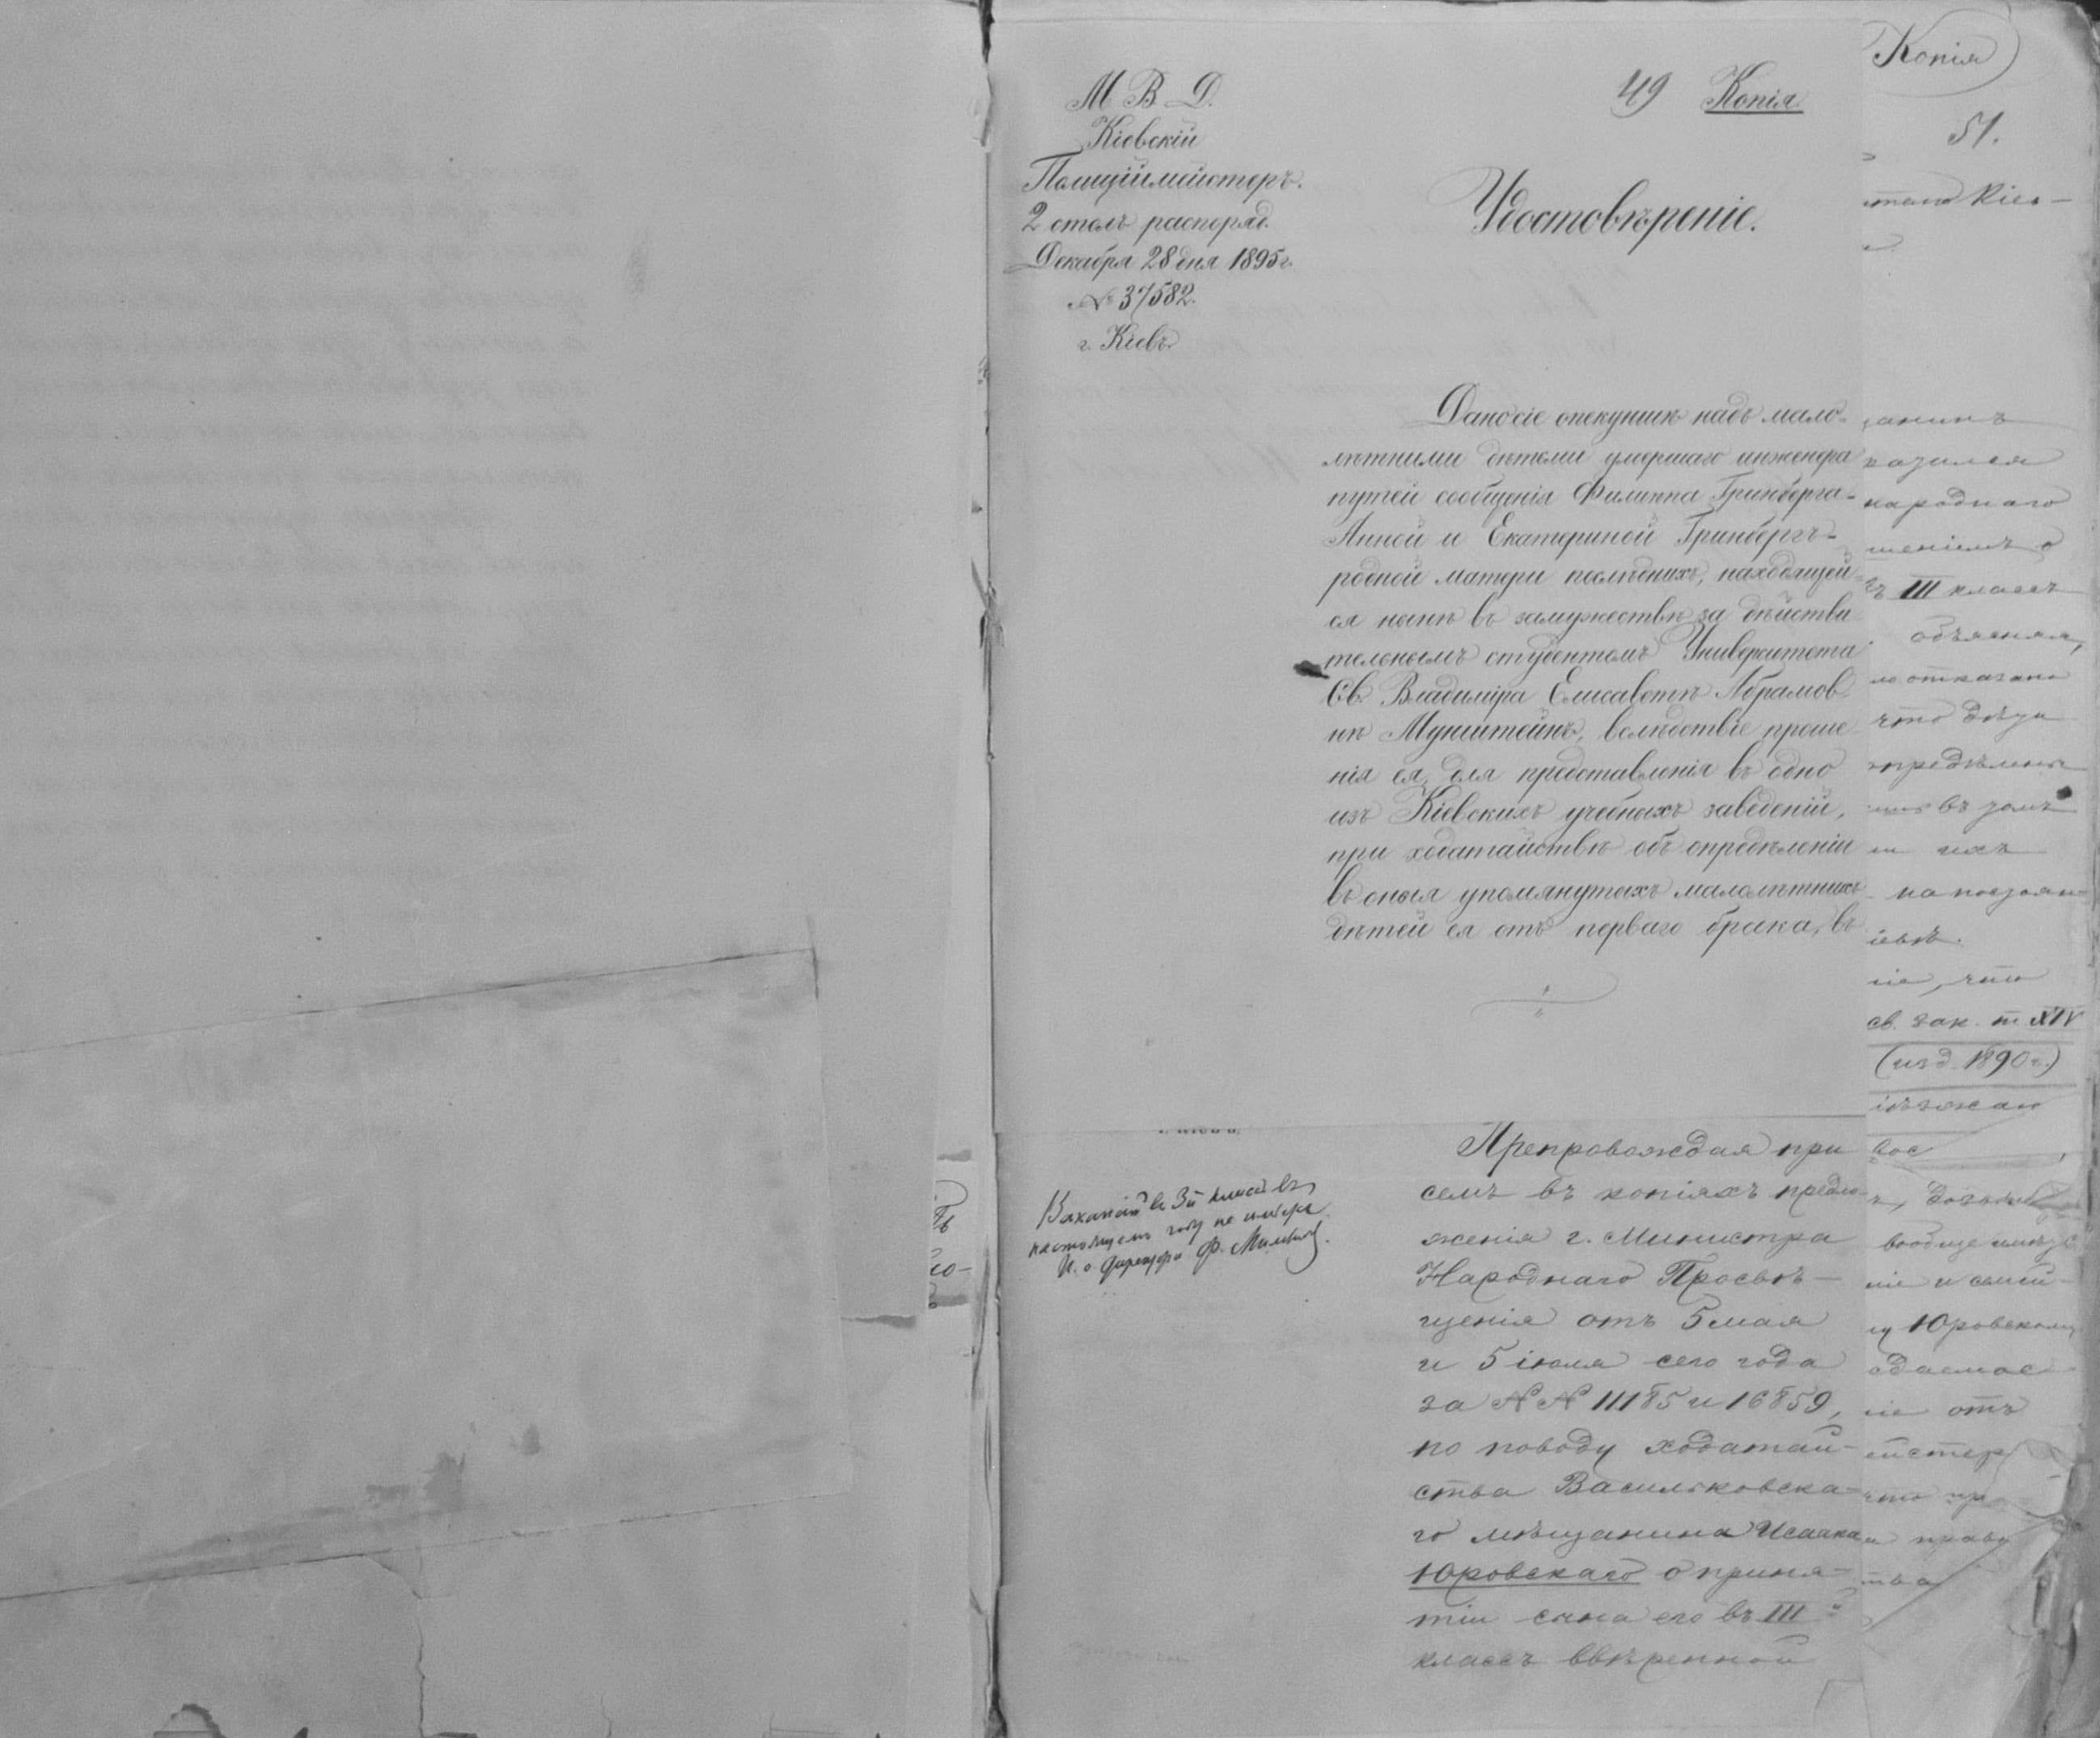 М В Д.
Кіевскій
Полиціймейстеръ.
2 столъ распоряд.
Декабря 28 дня 1895 г.
№ 37582.
г. Кіевъ.
49 Копія
Удостовѣреніе.
Дано сіе опекуншѣ надъ мало-
лѣтними дѣтьми умершаго инженера
путей сообщенія Филиппа Гринберга-
Анной и Екатериной Гринбергъ-
родной матери послѣднихъ, находящей
ся нынѣ въ замужествѣ за дѣйстви
тельнымъ студентомъ Университета
Св. Владиміра Елисаветѣ Абрамов
нѣ Мунштейнъ, вслѣдствіе проше
нія ея, для представленія въ одно
изъ Кіевскихъ учебныхъ заведеній,
при ходатайствѣ объ опредѣленіи
въ оныя упомянутыхъ малолѣтнихъ
дѣтей ея отъ перваго брака, въ
г. Кіевъ.
Вакансій въ 3й классъ въ
настоящемъ году не имѣется.
И. о. Директора
Препровождая при
семъ въ копіяхъ предло
женія г. Министра
Народнаго Просвѣ-
щенія отъ 5 мая
и 5 іюля сего года
за №№ 11185 и 16859,
по поводу ходатай-
ства Васильковска-
го мѣщанина Исаака
Юровскаго о приня-
тіи сына его въ III й
классъ ввѣренной
Копія
51.
Кіев-
анинъ
народнаго
шеніемъ о
ъ III классъ
объясняя,
отказано
что дѣти
опредѣлены
ихъ
іевѣ.
іе, что
св. зак. т. XIV
(изд. 1890 г.)
вообще
ніе и семей-
у Юровскому
даемое
іе отъ
ейстер
что пр
а право
тва